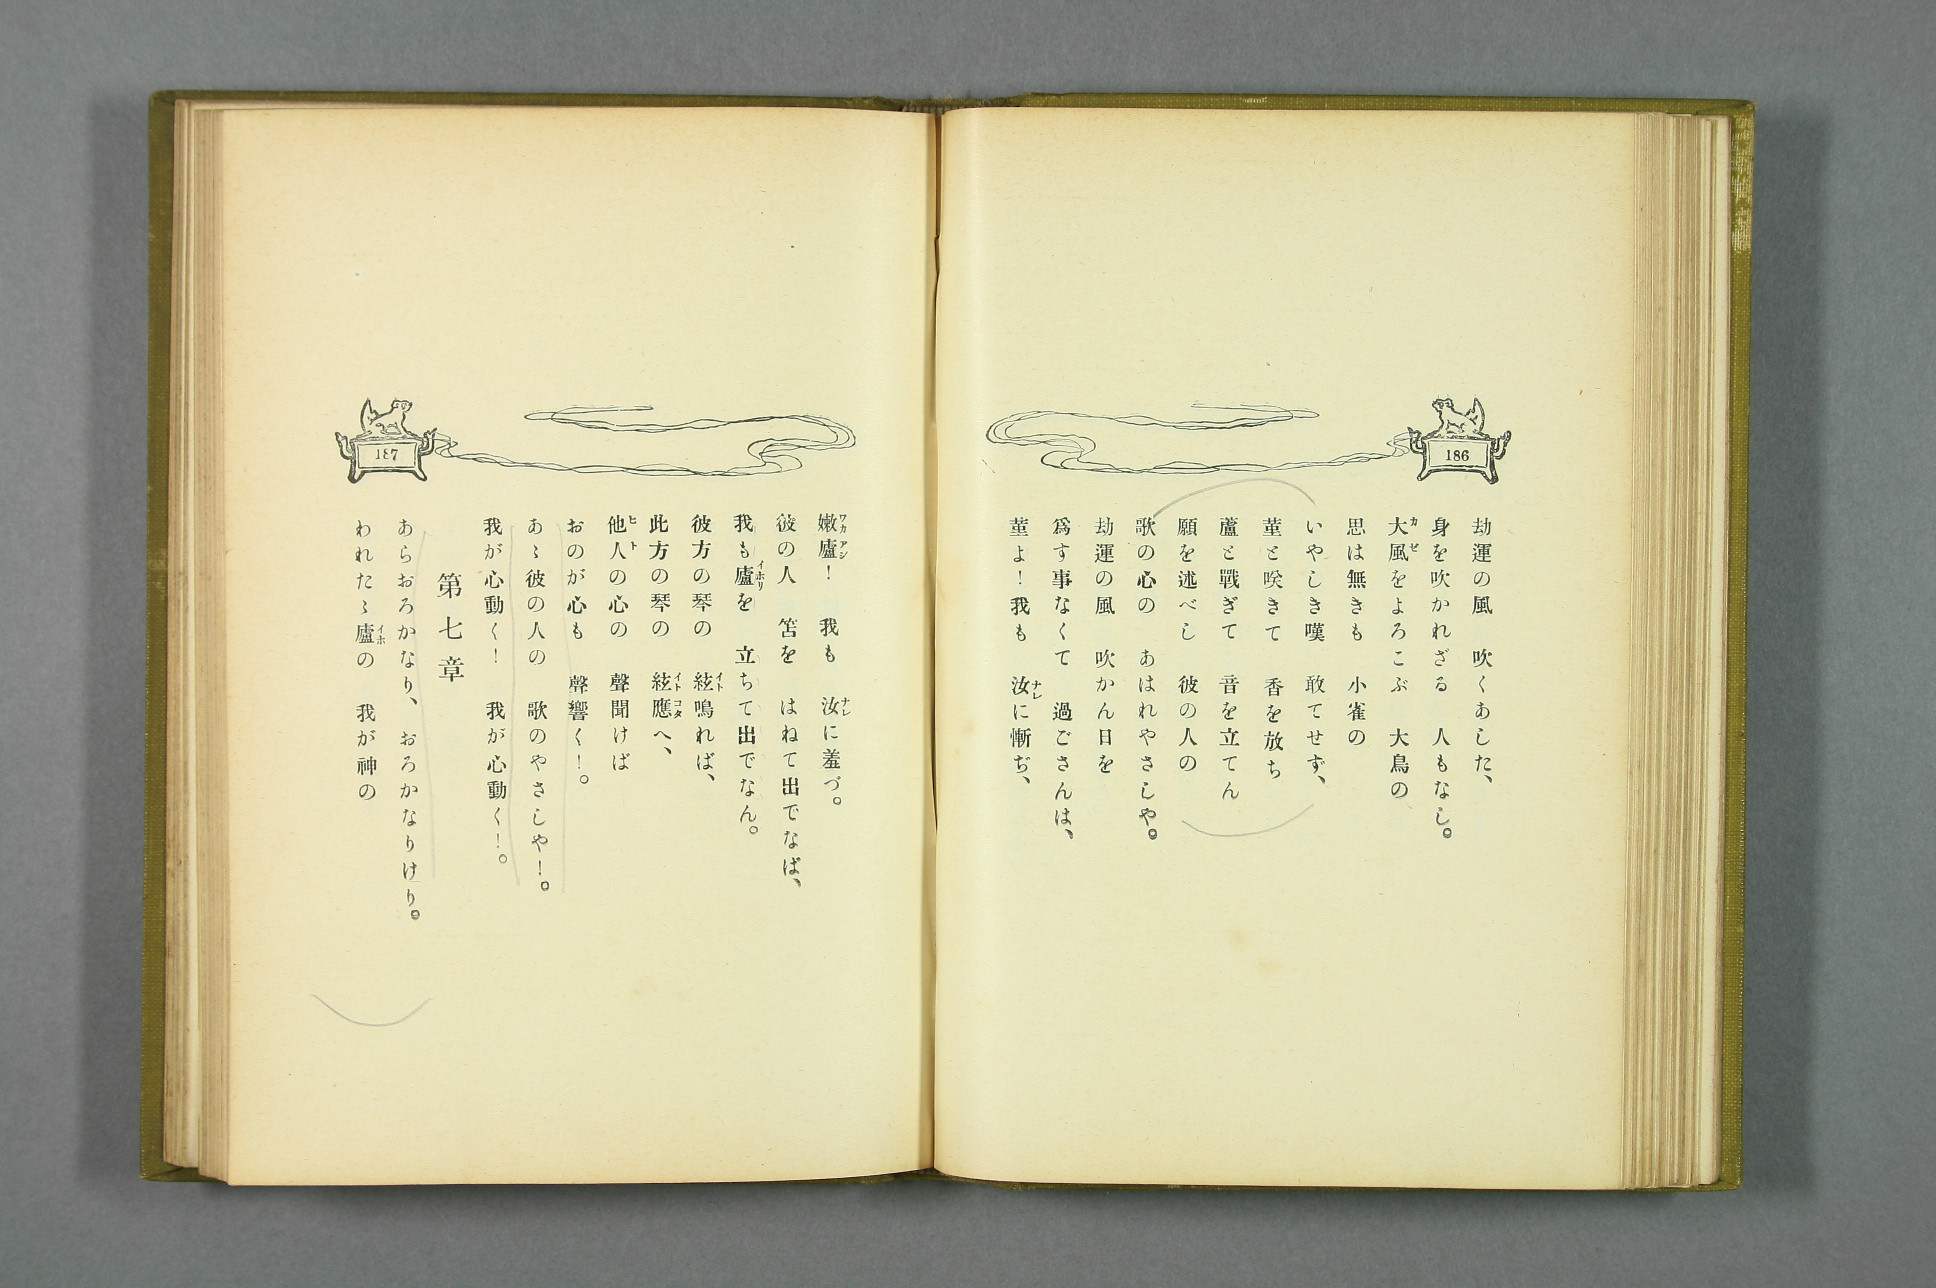 186
劫運の風　吹くあした、
身を吹かれざる　人もなし。
大風をよろこぶ　大鳥の
カゼ
思は無きも　小雀の
いやしき嘆　敢てせず、
菫と咲きて　香を放ち
蘆と戰ぎて　音を立てん
願を述べし　彼の人の
歌の心の　あはれやさしや。
劫運の風　吹かん日を
爲す事なくて　過ごさんは、
菫よ！我も　汝に慚ぢ、
ナレ
187
嫩蘆！　我も　汝に羞づ。
ワカアシ　ナレ
彼の人　笘を　はねて出でなば、
我も廬を　立ちて出でなん。
イホリ
彼方の琴の　絃鳴れば、
イト
此方の琴の　絃應へ、
イトコタ
他人の心の　聲聞けば
ヒト
おのが心も　聲響く！。
あゝ彼の人の　歌のやさしや！。
我が心動く！　我が心動く！。
第七章
あらおろかなり、　おろかなりけり。
われたゝ廬の　我が神の
イホ